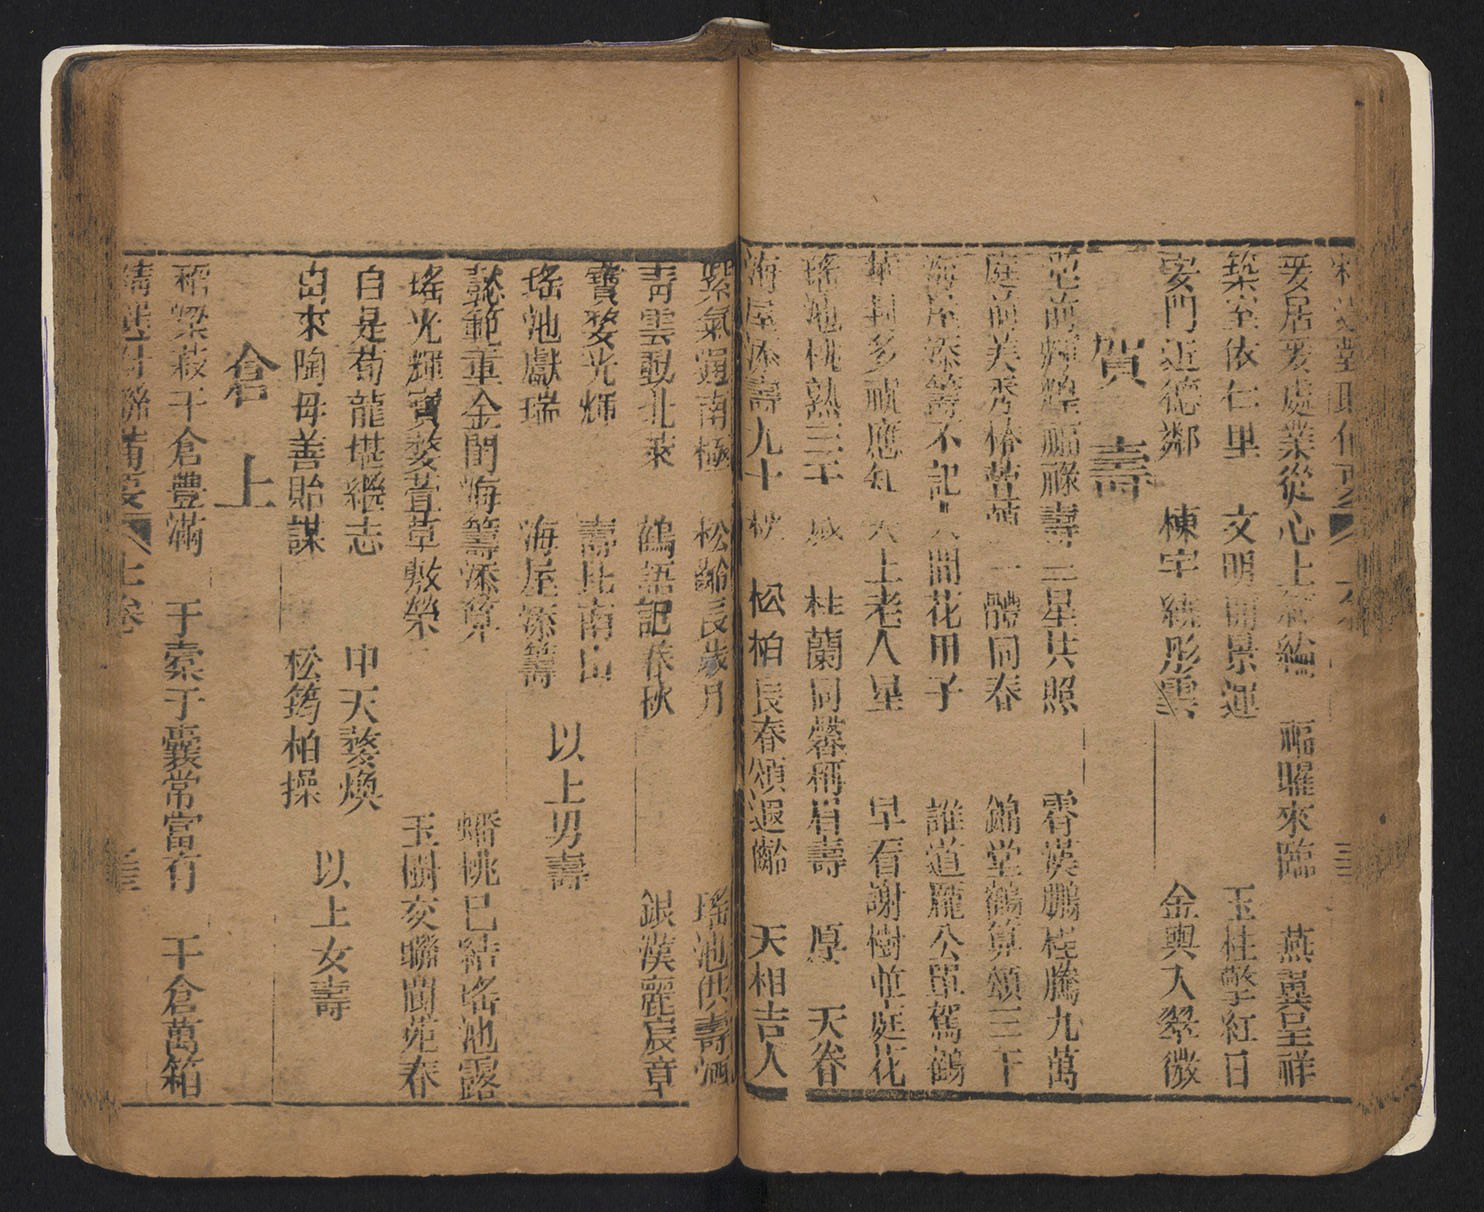 爰居爰處業從心上 綸 福曜來臨 燕翼呈祥
築室依仁里 文明開景運 玉柱擎紅日
安門近德鄰 棟宇繞彤雲 金輿入翠微
賀壽
前輝煌福祿壽三星共照 霄漢鵬程騰九萬
庭前美秀椿萱 一體同春 錦堂鶴算頌三千
海屋添籌不記 間花甲子 誰道龐公單駕鶴
華封多祝應 上老人星 早看謝樹並庭花
瑤池桃熟三千 桂蘭同馨稱眉壽 厚 天眷
海屋添壽九十 松柏長春頌遐齡 天相吉人
紫氣 南極 松齡長歲月 瑤池供壽酒
青雲動北萊 鶴語記春秋 銀漢麗宸章
寶婺光輝 壽比南山
瑤池獻瑞 海屋添籌 以上男壽
懿範重金閨海籌添算 蟠桃已結瑤池露
瑤光輝寶婺萱草敷榮 玉樹交聯閬苑春
自是荀龍堪繼志 中天婺煥
由來陶母善貽謀 松筠柏操 以上女壽
倉上
稻粱菽千倉豐滿 于橐于囊常富有 千倉萬箱
對聯備要 上卷